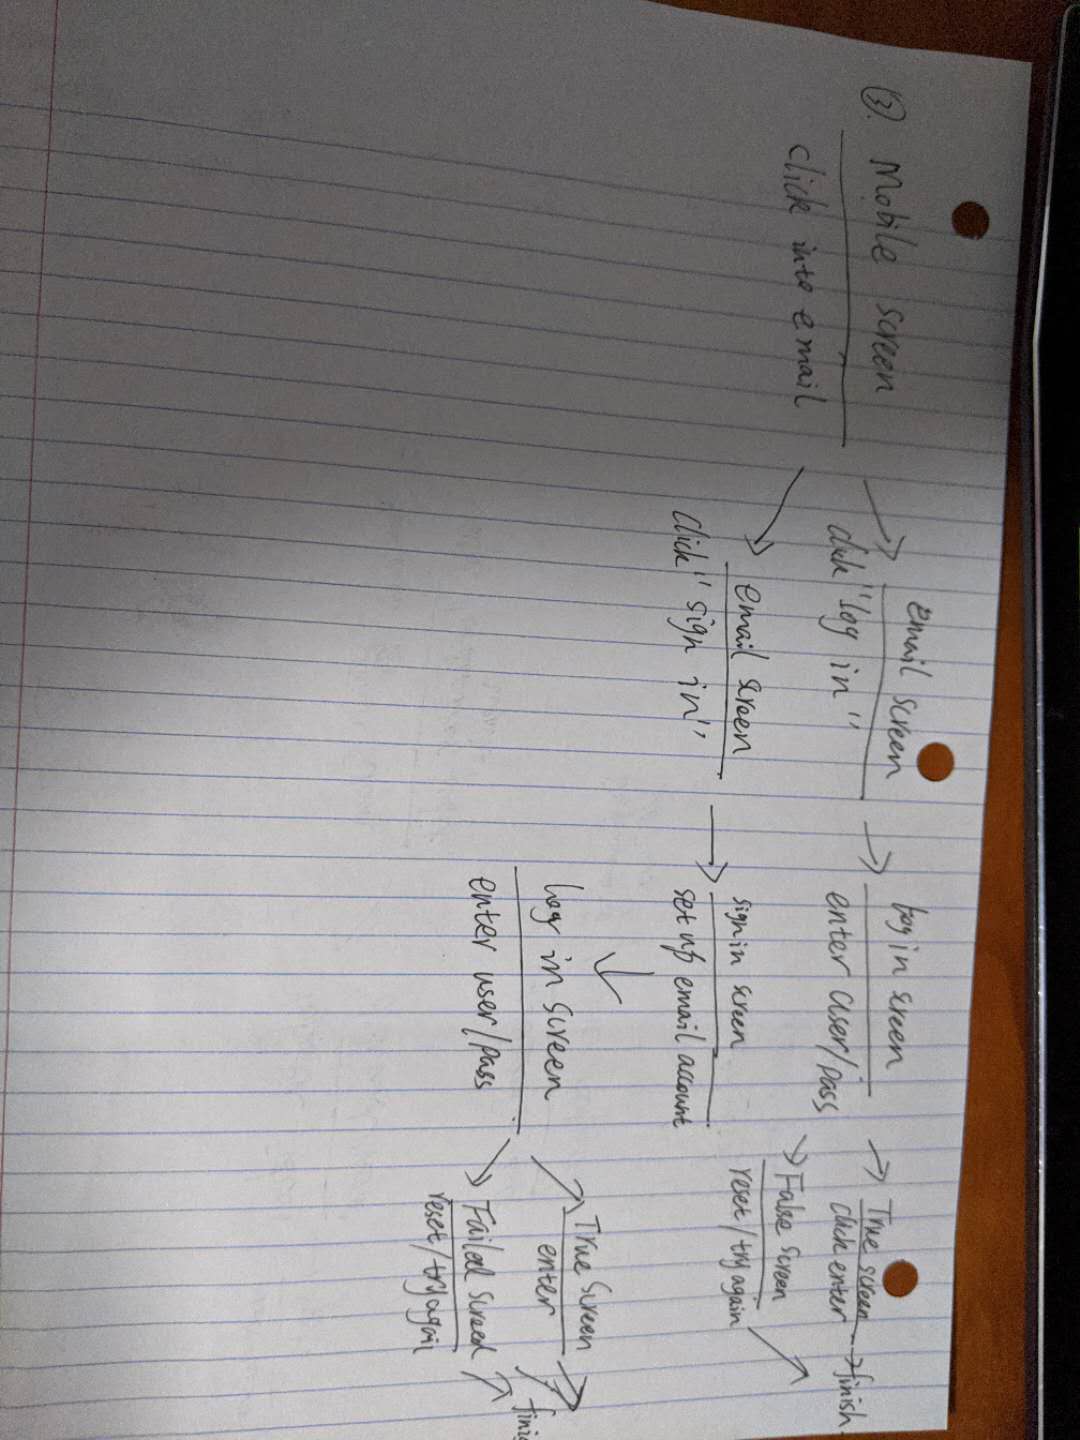 ③. Mobile screen
click into email
email screen
click "log in"
log in screen
enter user/pass
True screen
click enter
finish
False screen
reset/try again
email screen
click "sign in"
sign in screen
set up email account
Log in screen
enter user/pass
True screen
enter
Failed screed
reset/try again